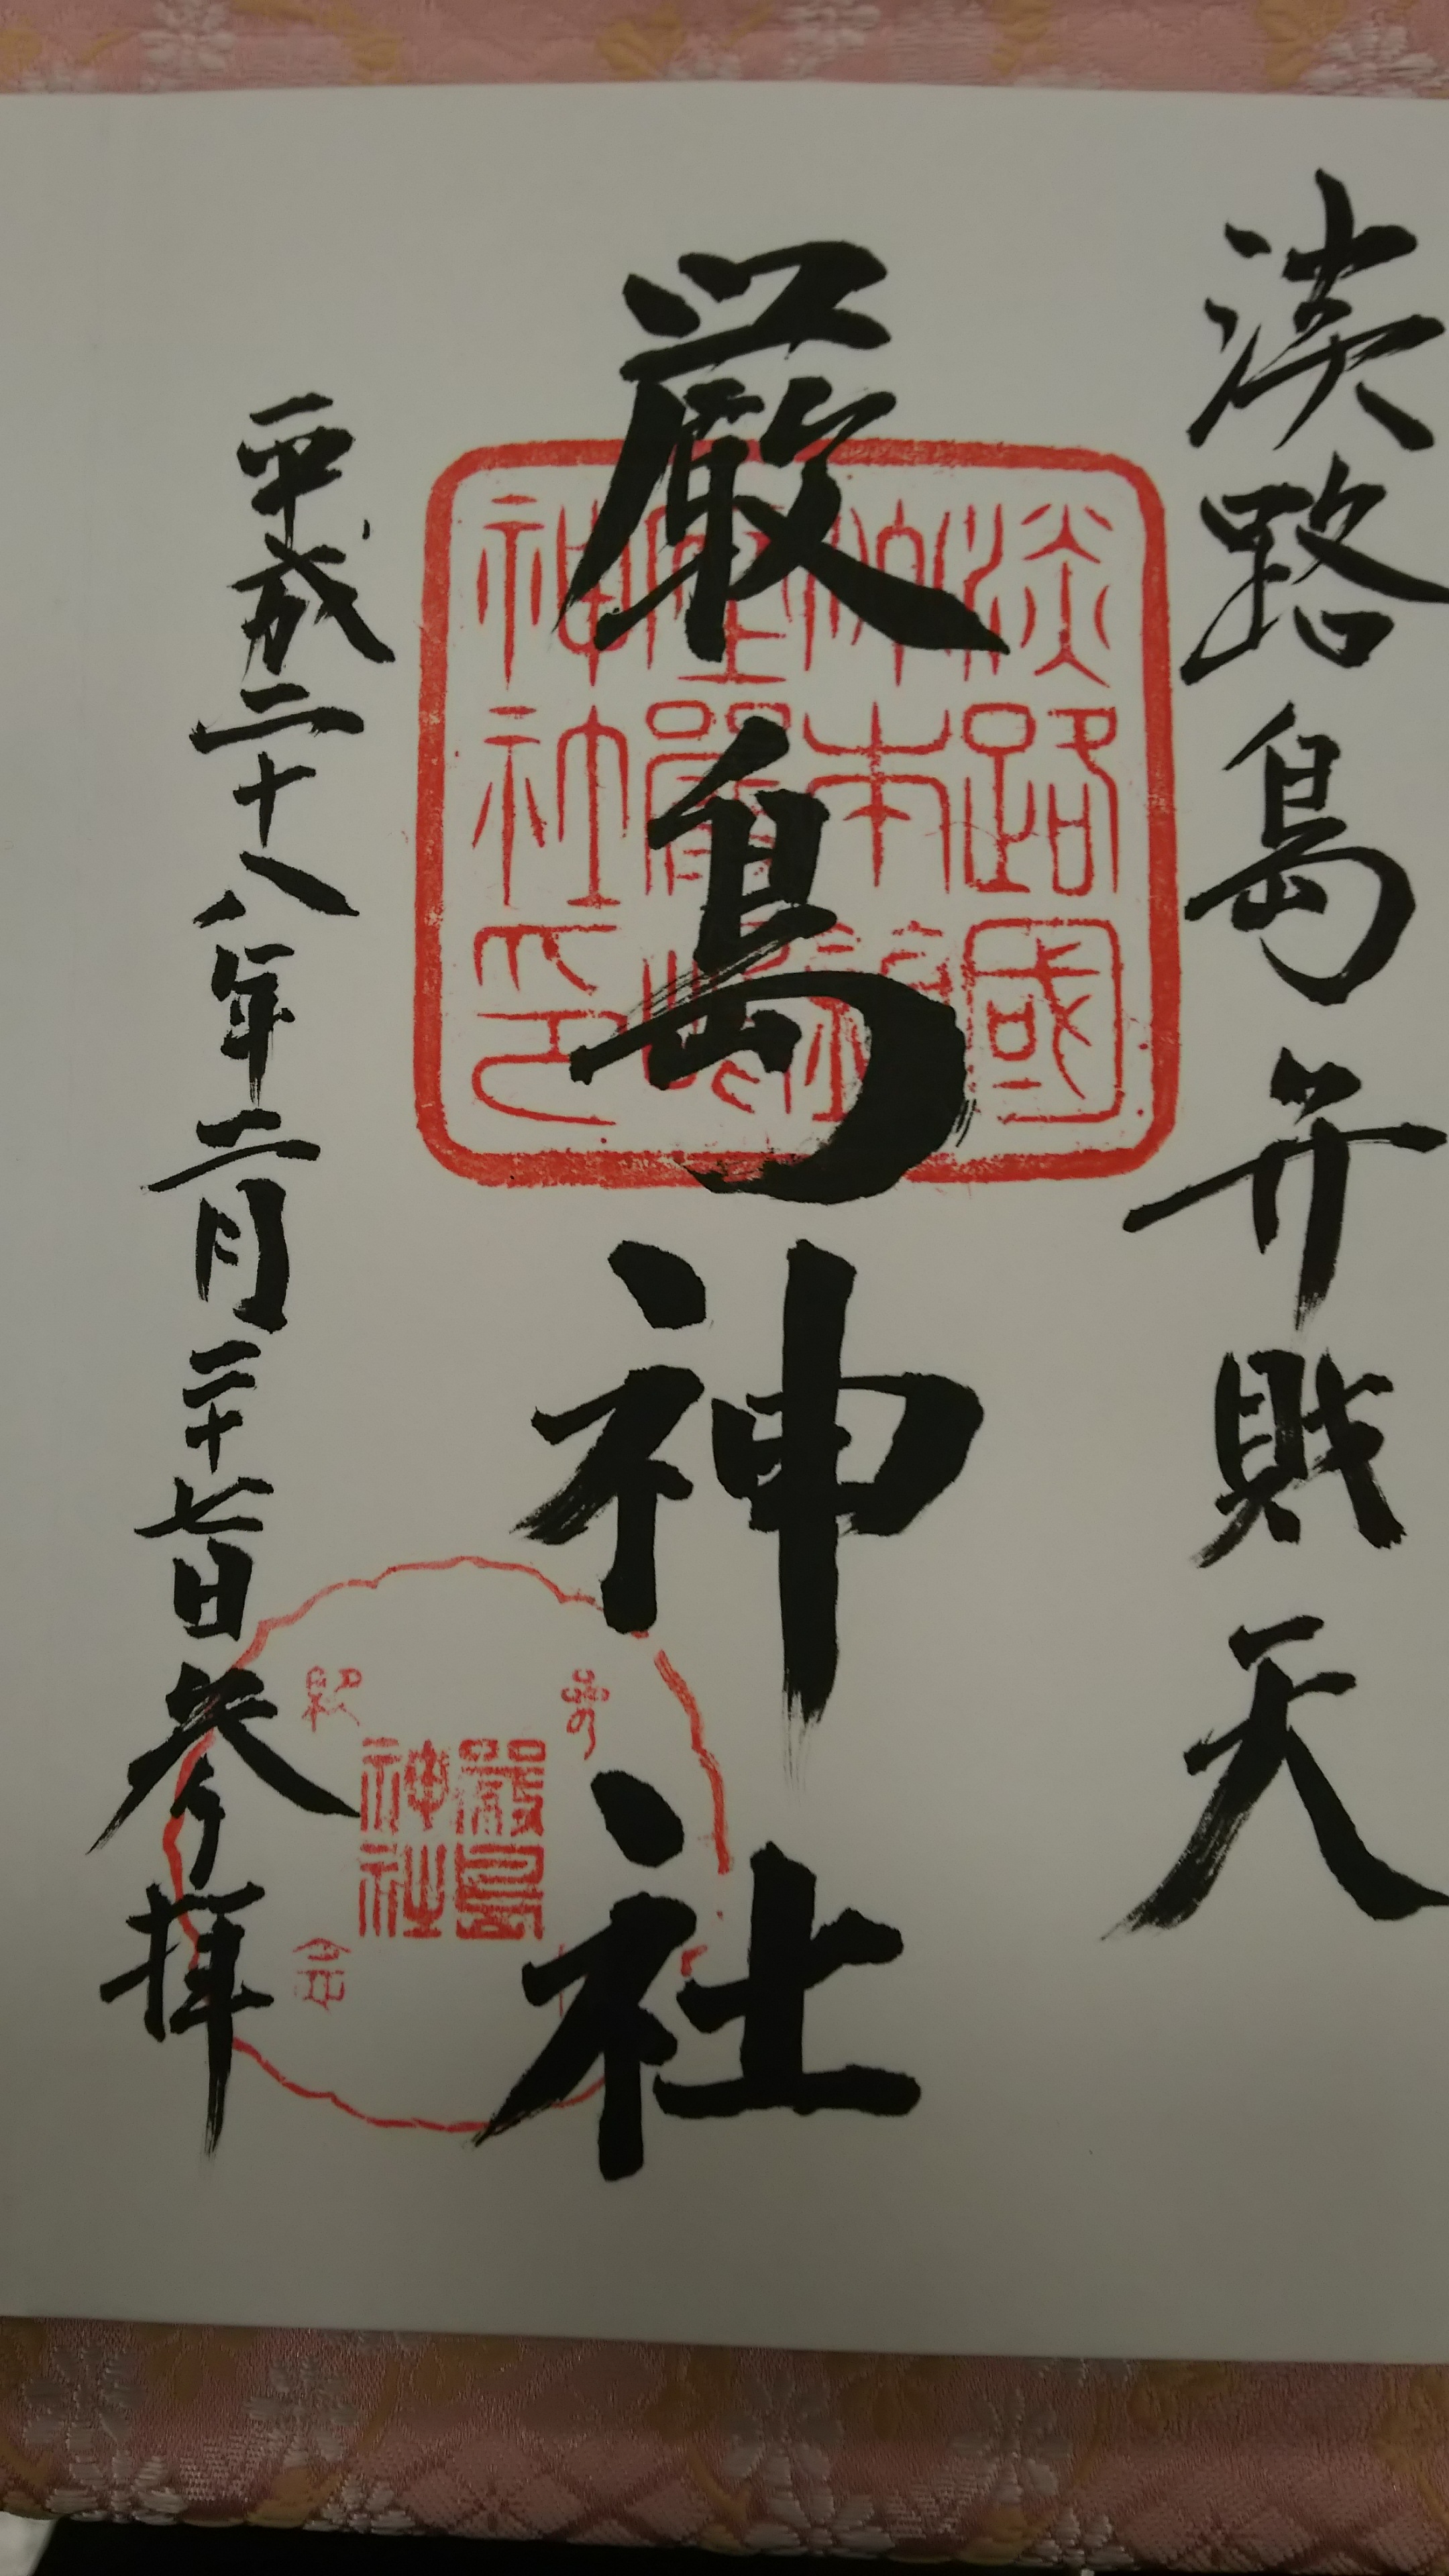 淡路島弁財天
厳島神社
平成二十八年二月二十七日参拝
淡路國
洲本鎮
座嚴島
神社印
嚴島
神社